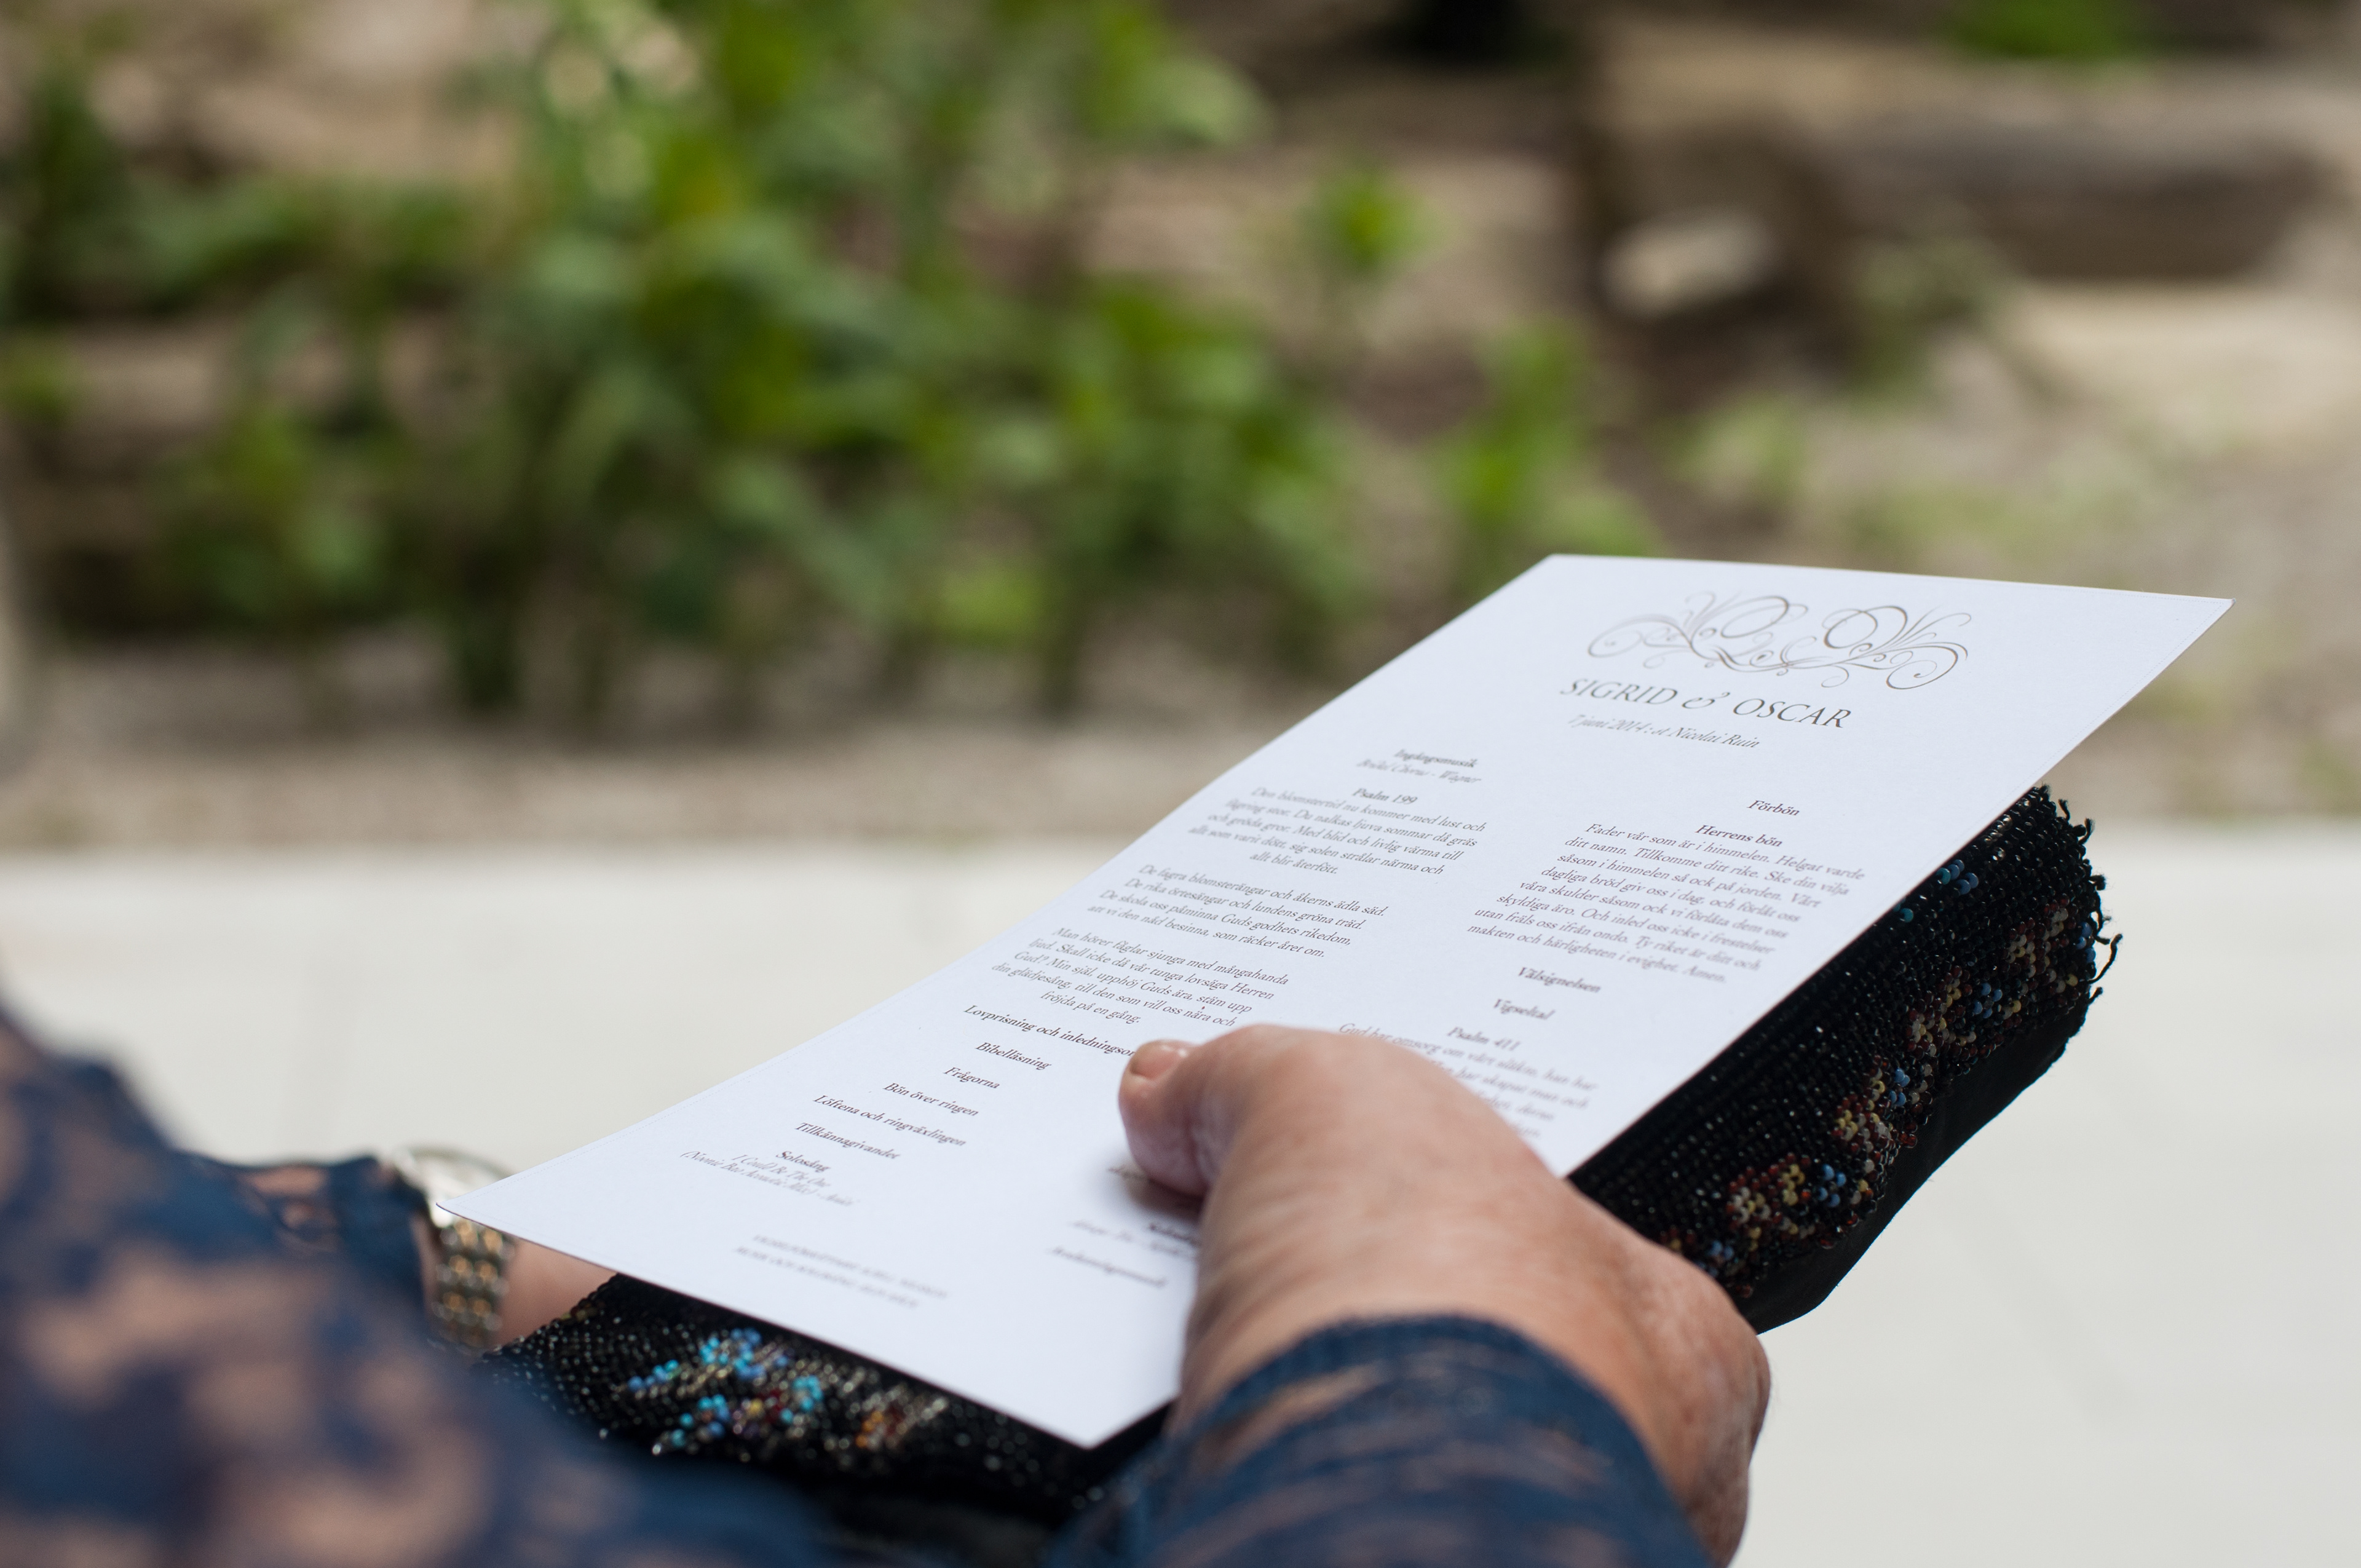 SIGRID & OSCAR
7 juni 2014 : st Nicolai Ruin
Ingångsmusik
Bridal Chorus - Wagner
Psalm 199
Den blomstertid nu kommer med lust och
fägring stor. Du nalkas ljuva sommar då gräs
och gröda gror. Med blid och livlig värma till
allt som varit dött, sig solen strålar närma och
allt blir återfött.
De fagra blomsterängar och åkerns ädla säd.
De rika örtesängar och lundens gröna träd.
De skola oss påminna Guds godhets rikedom,
att vi den nåd besinna, som räcker året om.
Man hörer fåglar sjunga med mångahanda
ljud. Skall icke då vår tunga lovsäga Herren
Gud? Min själ, upphöj Guds ära, stäm upp
din glädjesång, till den som vill oss nära och
fröjda på en gång.
Lovprisning och inledningsor
Bibelläsning
Frågorna
Bön över ringen
Löftena och ringväxlingen
Tillkännagivandet
Solosång
Förbön
Herrens bön
Fader vår som är i himmelen. Helgat varde
ditt namn. Tillkomme ditt rike. Ske din vilja
såsom i himmelen så ock på jorden. Vårt
dagliga bröd giv oss i dag, och förlåt oss
våra skulder såsom ock vi förlåta dem oss
skyldiga äro. Och inled oss icke i frestelser
utan fräls oss ifrån ondo. Ty riket är ditt och
makten och härligheten i evighet. Amen.
Välsignelsen
Vigseltal
Psalm 411
Gud har omsorg om vårt släkte, han har
har skapat man och